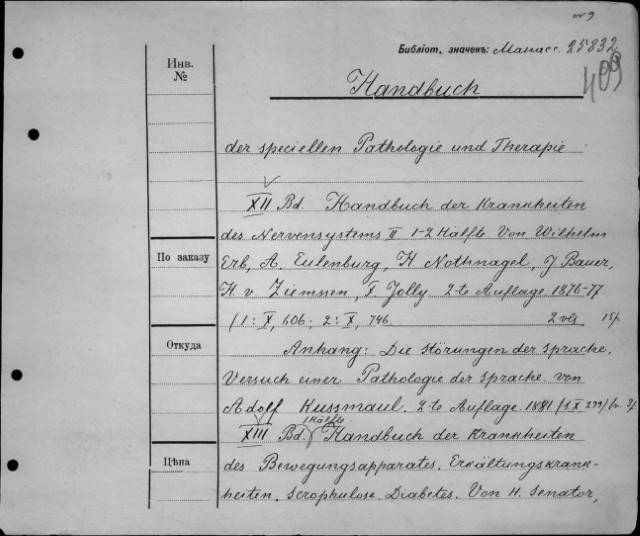 Библіот. значекъ: Манасс. 25832
409
Инв.
№
Handbuch
der speciellen Pathologie und Therapie
XII Bd. Handbuch der Krankheiten
des Nervensystems II 1-2 Hälfte Von Wilhelm
По заказу
Erb, A. Eulenburg, H. Nothnagel, J. Bauer,
H. v. Ziemssen, F. Jolly. 2-te Auflage 1876-77
(1: X, 606; 2: X, 746 2 vls 15 p.
Откуда
Anhang: Die Störungen der Sprache.
Versuch einer Pathologie der Sprache von
Adolf Kussmaul. 2-te Auflage 1881 (X 299)
XIII Bd. 1 Hälfte Handbuch der Krankheiten
Цѣна
des Bewegungsapparates. Erkältungskrank-
heiten. Scrophulose. Diabetes. Von H. Senator,